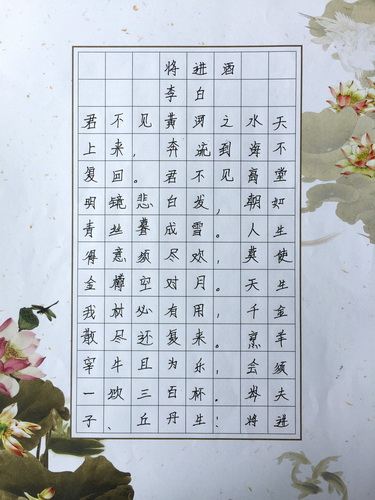 将进酒
李白
君不见黄河之水天
上来，奔流到海不
复回。君不见高堂
明镜悲白发，朝如
青丝暮成雪。人生
得意须尽欢，莫使
金樽空对月。天生
我材必有用，千金
散尽还复来。烹羊
宰牛且为乐，会须
一饮三百杯。岑夫
子、丘丹生！将进